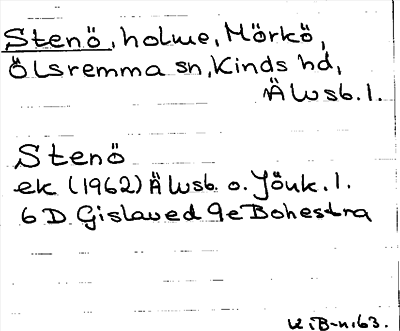 Stenö, holme, Mörkö,
Ölsremma sn, Kinds hd,
Älvsb. l.
Stenö
ek (1962) Älvsb. o. Jönk. l.
6 D Gislaved 9e Bohestra
K.B-n.63.